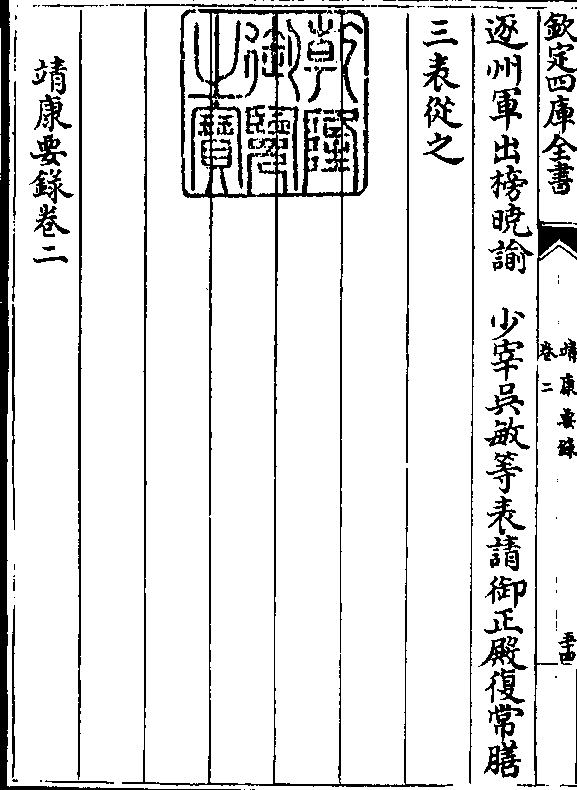 欽定四庫全書
靖康要錄
卷二
五十四
逐州軍出榜曉諭　少宰吳敏等表請御正殿復常膳
三表從之
乾隆御覽之寶
靖康要錄卷二